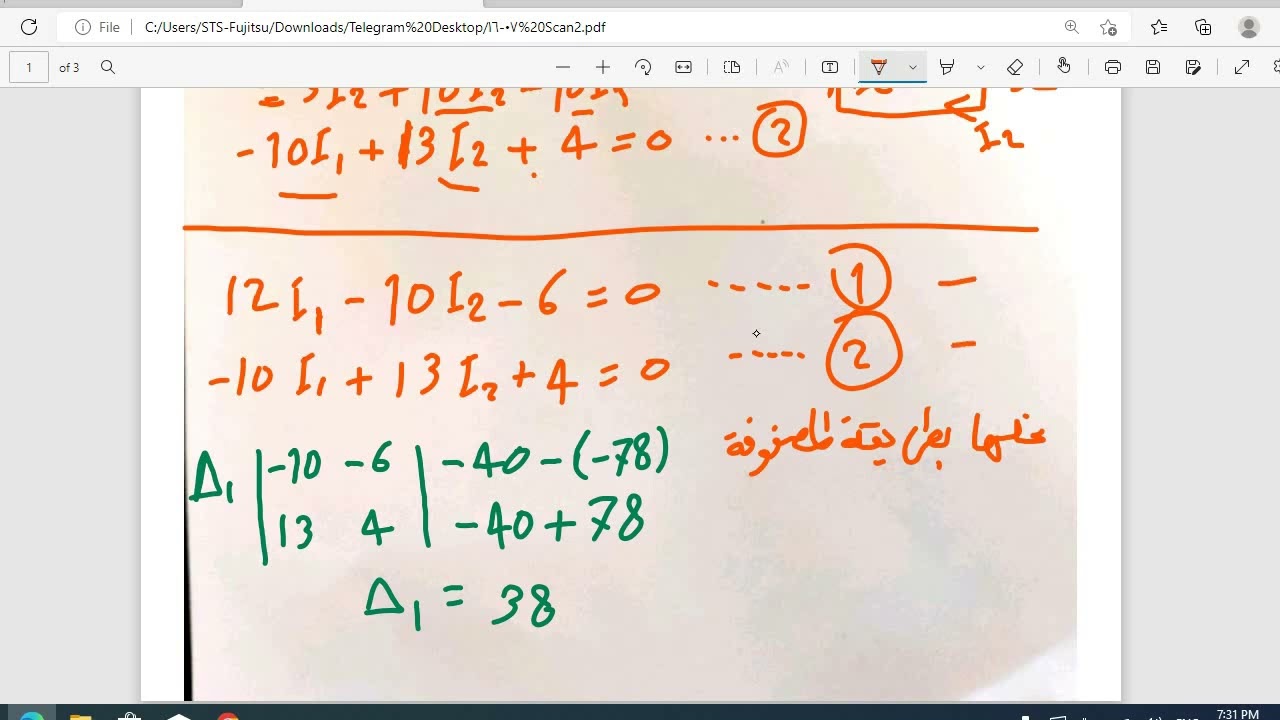 File C:/Users/STS-Fujitsu/Downloads/Telegram%20Desktop/١٦-٠٧%20Scan2.pdf
1 of 3
-10I₁ + 13I₂ + 4 = 0 ... ②
I₂
12I₁ - 10I₂ - 6 = 0 ...... ① -
-10I₁ + 13I₂ + 4 = 0 ..... ② -
Δ₁ | -10 -6 | -40 - (-78)
| 13 4 | -40 + 78
Δ₁ = 38
7:31 PM